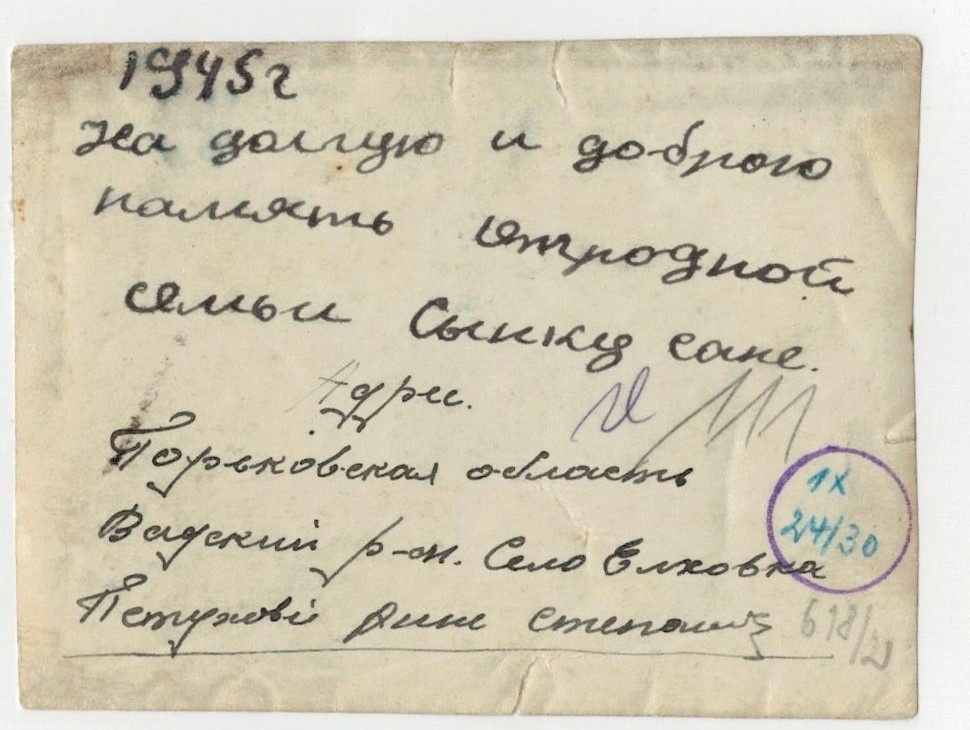 1945г
На долгую и доброю
память отродной
семьи Сынку Сане.
Адрес.
Горьковская область
III
Вадский р-он. Село Елховка
1X
24/30
Петуховой Анне Степановне
618/21